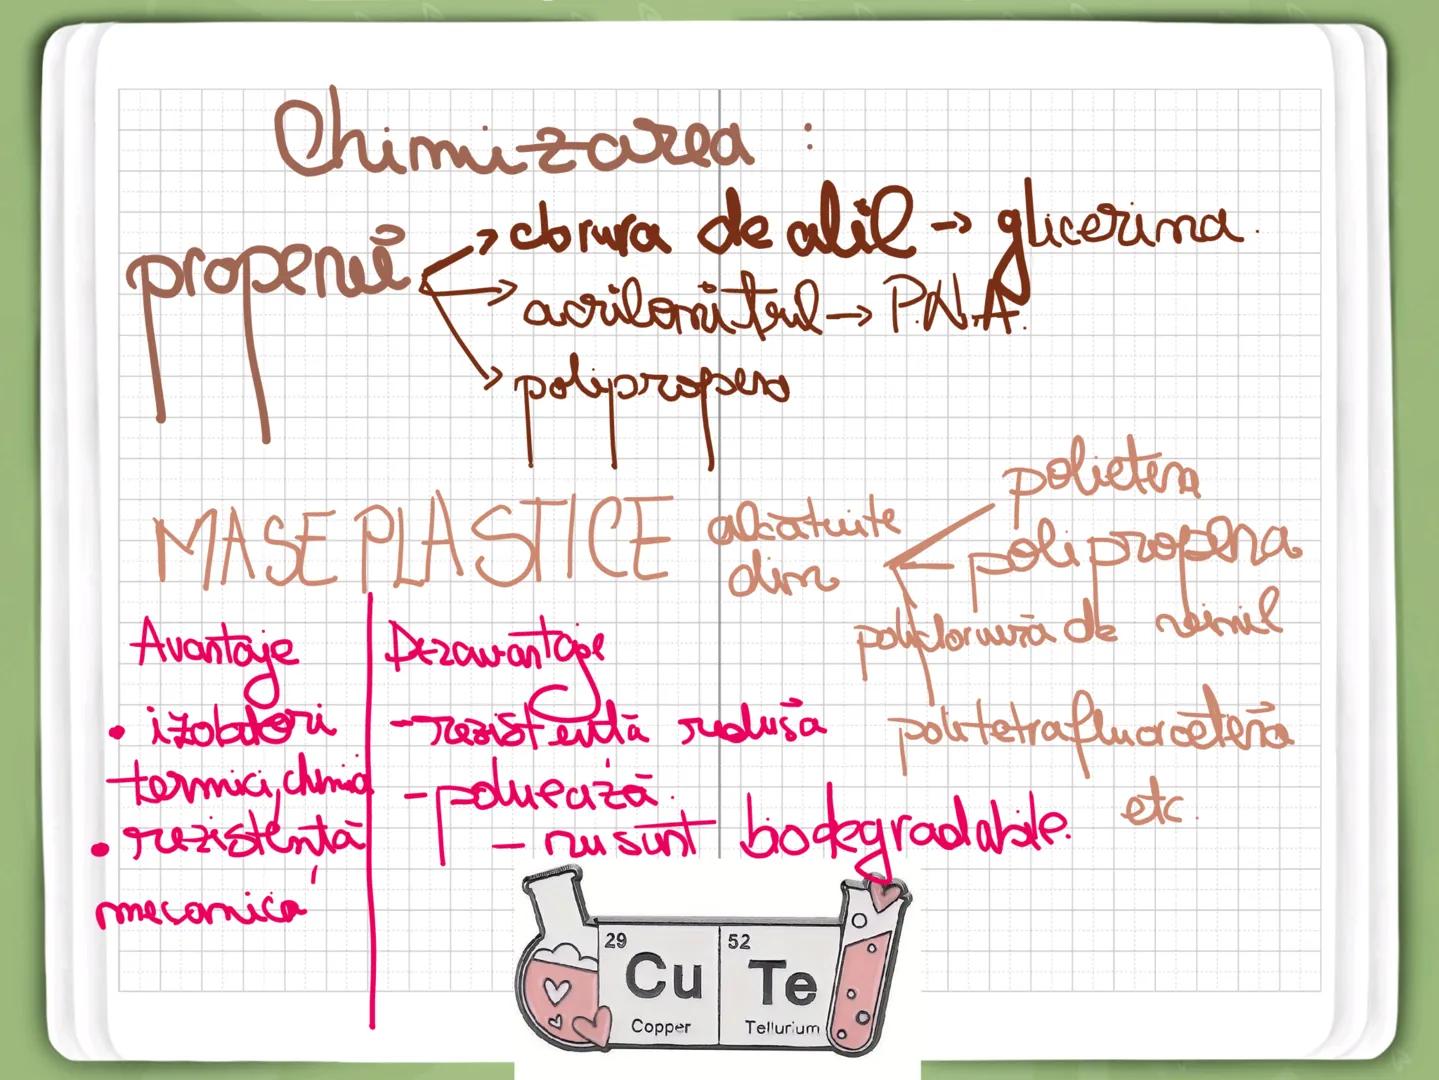 Chimizarea :
propenei
→ clorura de alil → glicerina.
→ acrilonitril → P.N.A.
→ polipropena
MASE PLASTICE
alcătuite
din
polietena
polipropena
policlorura de vinil
politetrafluoretena
etc.
Avantaje
• izolatori
termici, chimici
• rezistență
mecanică
Dezavantaje
- rezistență redusă
- poluează.
- nu sunt biodegradabile.
29
Cu
Copper
52
Te
Tellurium